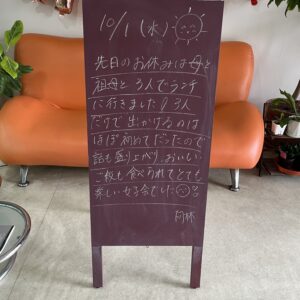 10/1(水)
先日のお休みは母と
祖母と3人でランチ
に行きました!3人
だけで出かけるのは
ほぼ初めてだったので
話も盛り上がり、おいしい
ご飯も食べられてとても
楽しい女子会でした